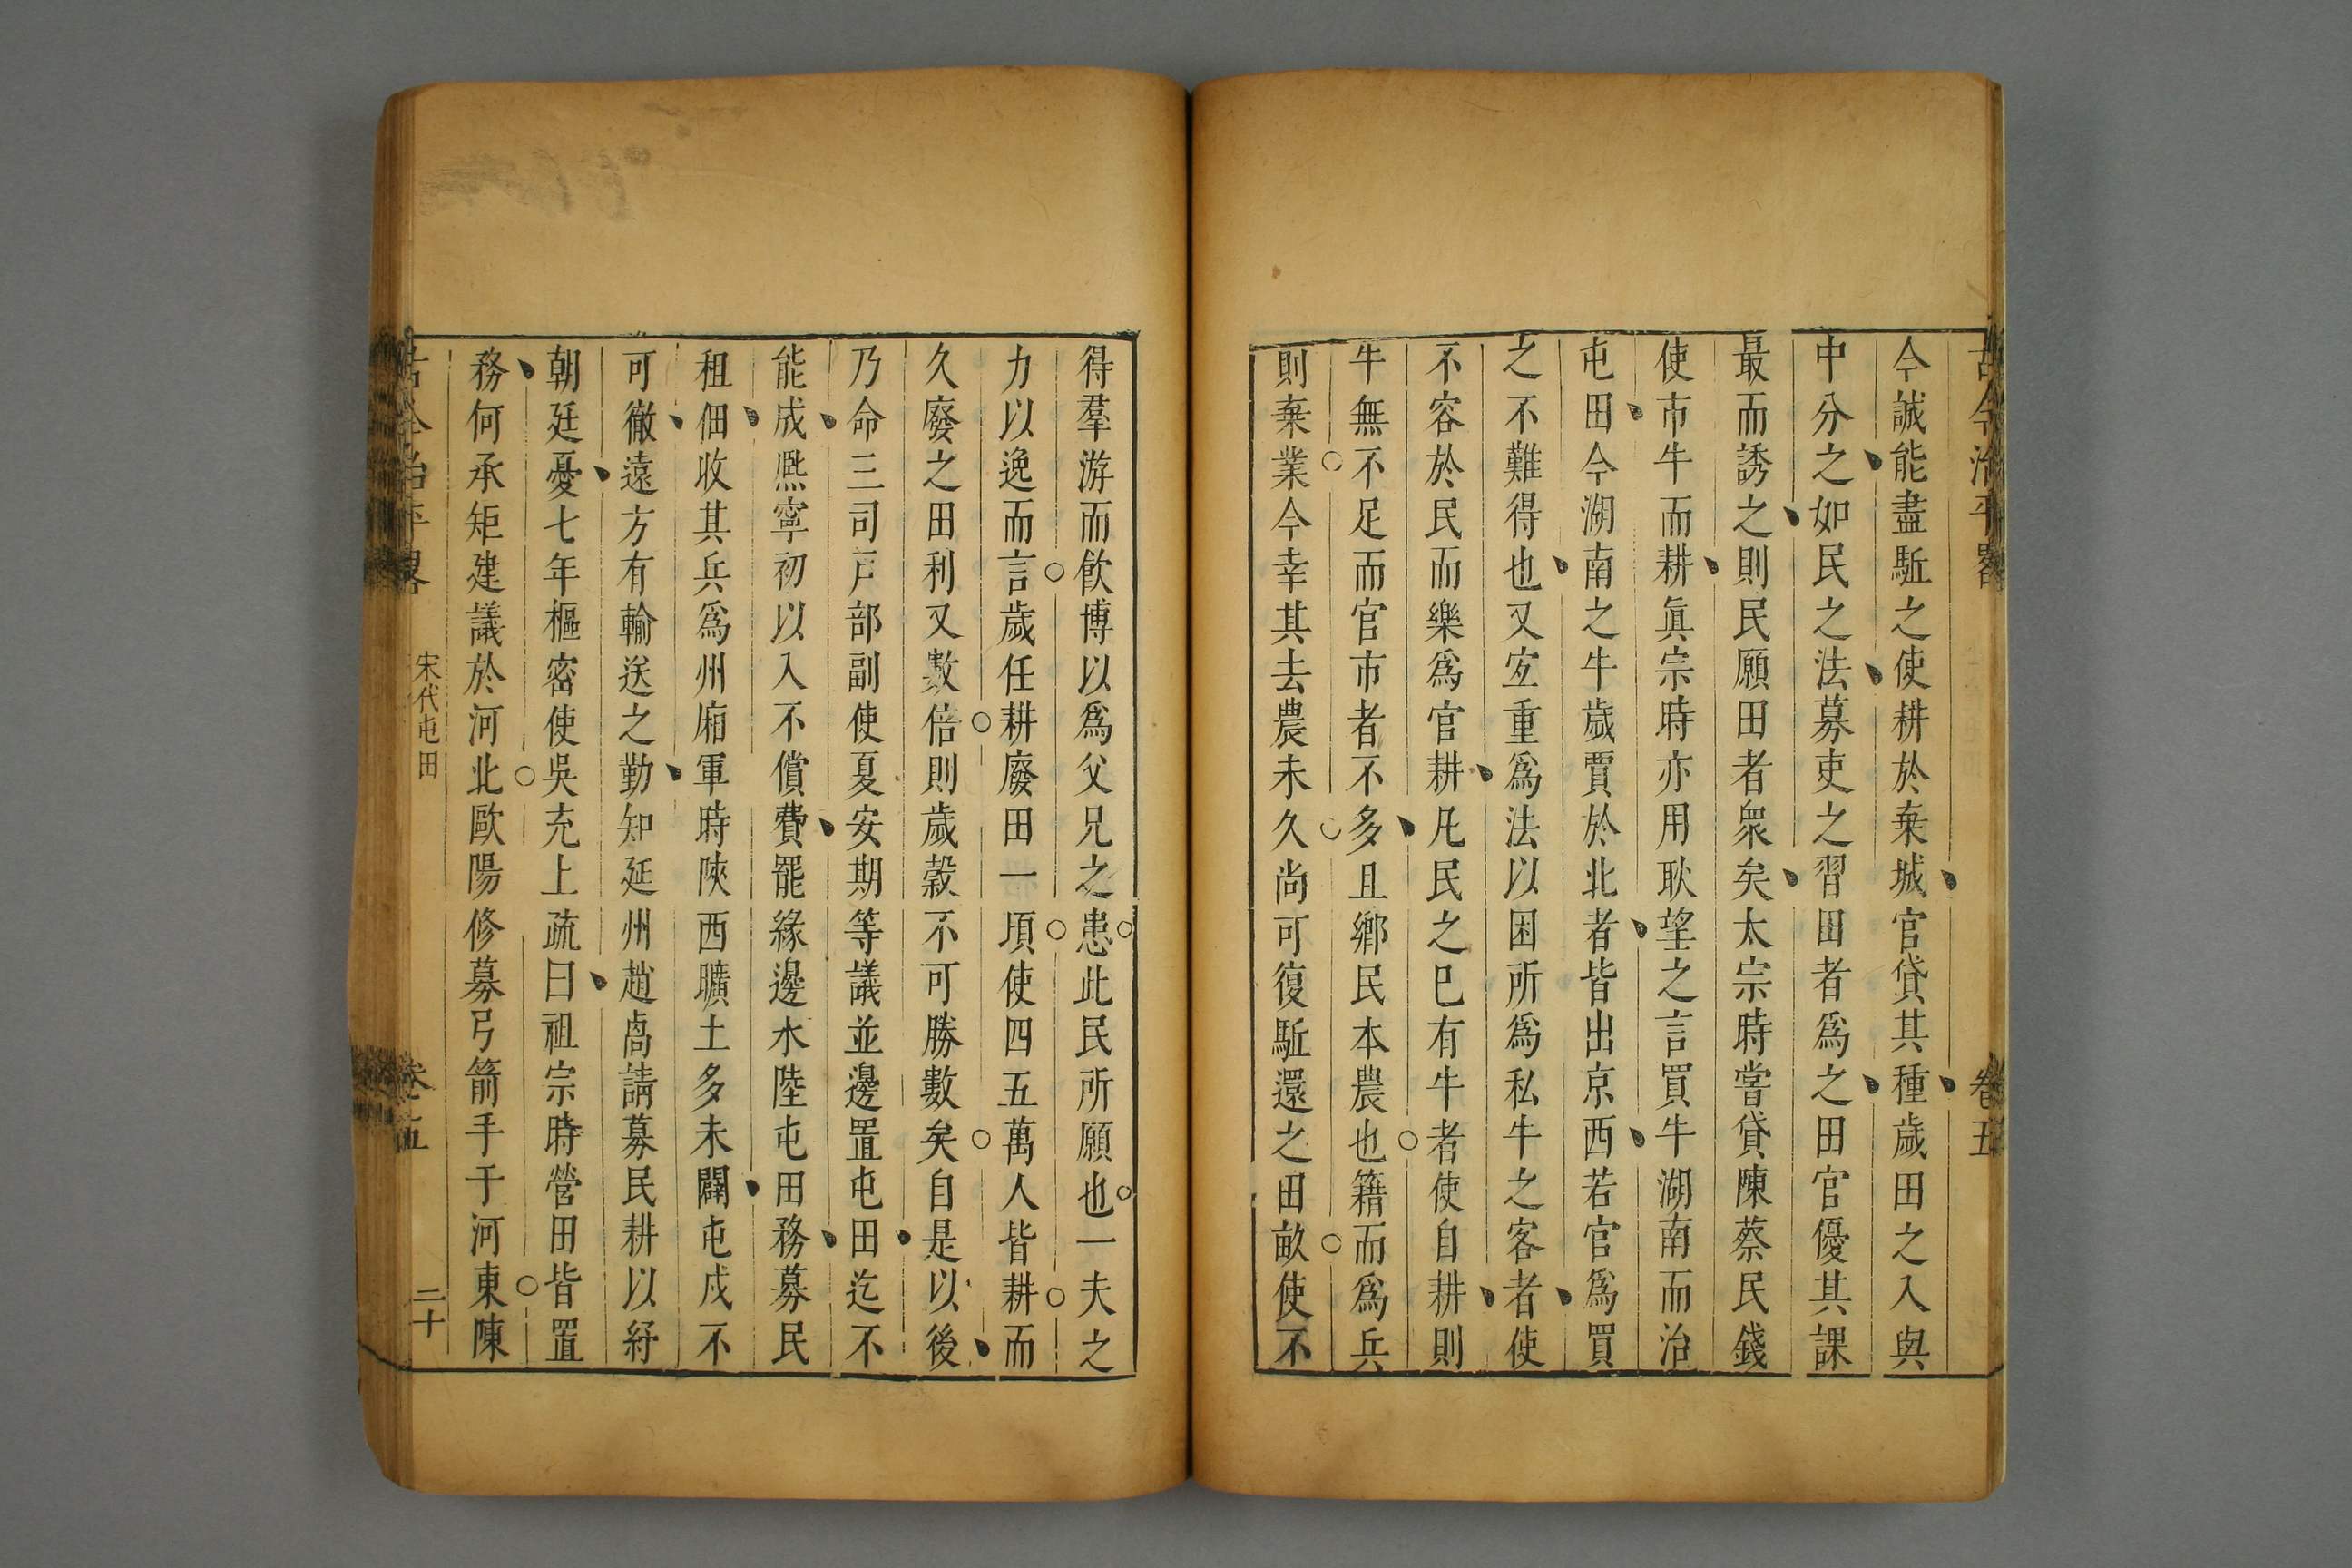 古今治平畧 卷五
今誠能盡駈之使耕於棄城官貸其種歲田之入與
中分之如民之法募吏之習田者爲之田官優其課
最而誘之則民願田者衆矣太宗時嘗貸陳蔡民錢
使市牛而耕眞宗時亦用耿望之言買牛湖南而治
屯田今湖南之牛歲賈於北者皆出京西若官爲買
之不難得也又宐重爲法以困所爲私牛之客者使
不容於民而樂爲官耕凡民之已有牛者使自耕則
牛無不足而官市者不多且鄉民本農也籍而爲兵
則棄業今幸其去農未久尚可復駈還之田畝使不
得羣游而飲博以爲父兄之患此民所願也一夫之
力以逸而言歲任耕廢田一頃使四五萬人皆耕而
久廢之田利又數倍則歲穀不可勝數矣自是以後
乃命三司戸部副使夏安期等議並邊置屯田迄不
能成熈寧初以入不償費罷緣邊水陸屯田務募民
租佃收其兵爲州廂軍時陝西曠土多未闢屯戍不
可徹遠方有輸送之勤知延州趙卨請募民耕以紓
朝廷憂七年樞密使吳充上疏曰祖宗時營田皆置
務何承矩建議於河北歐陽修募弓箭手于河東陳
古今治平畧 宋代屯田 卷五 二十